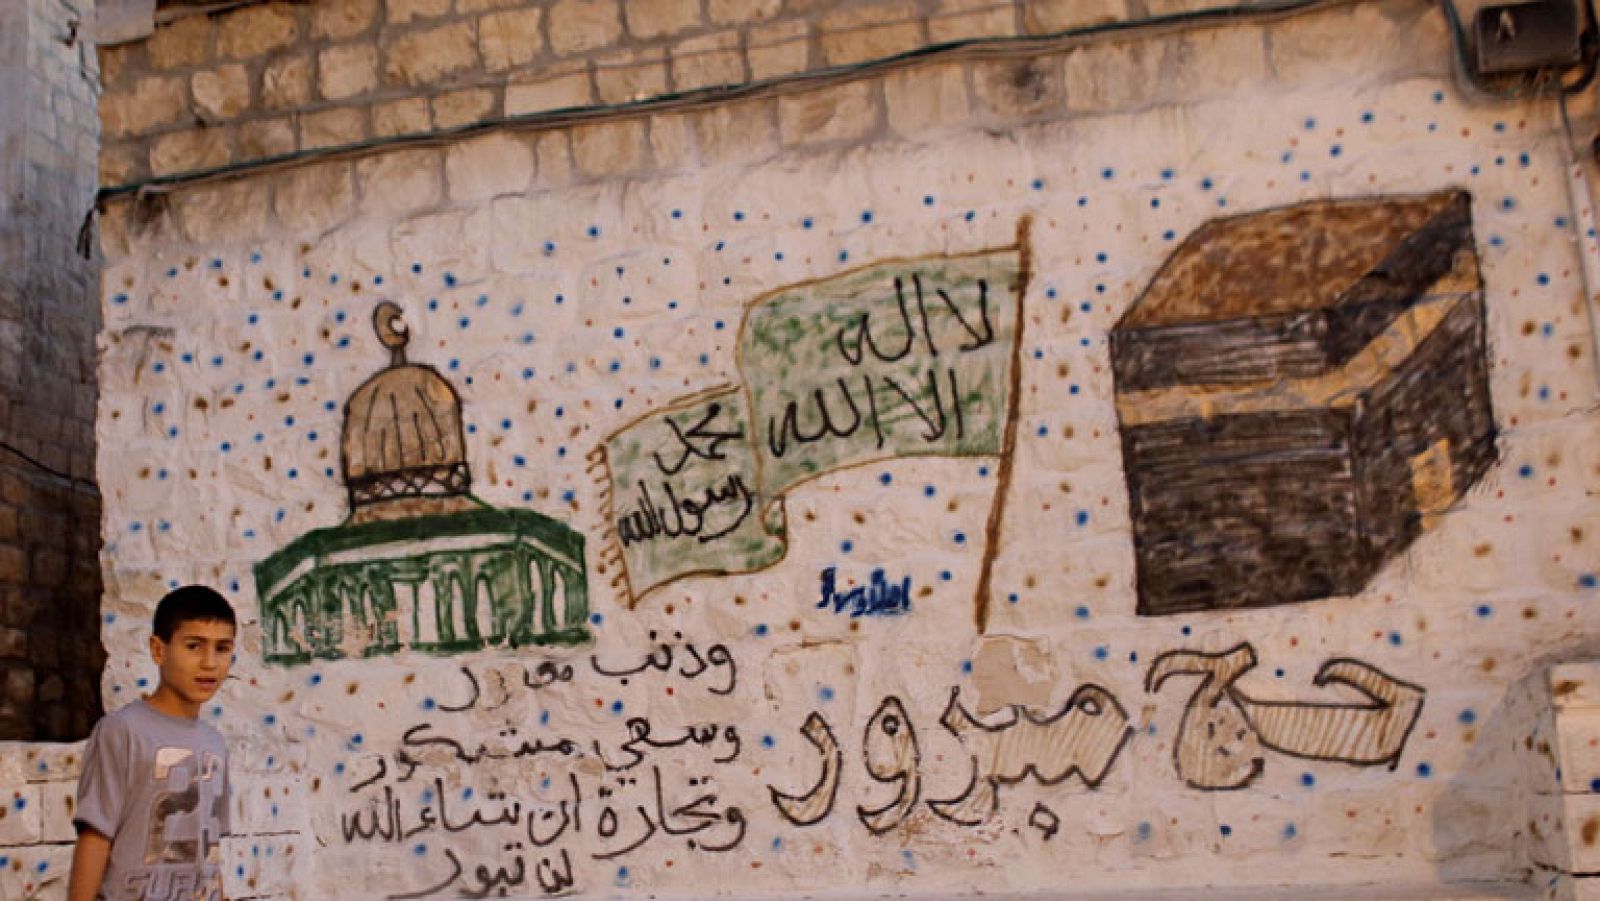 لا اله
الا الله
محمد
رسول الله
حج مبرور
وذنب مغفور
وسعي مشكور
وتجارة ان شاء الله
لن تبور
SURF